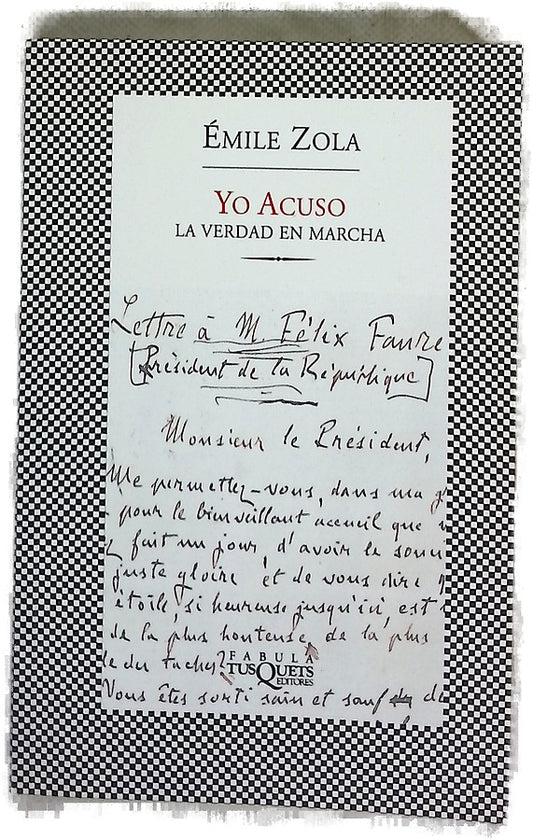 ÉMILE ZOLA
YO ACUSO
LA VERDAD EN MARCHA
Lettre à M. Félix Faure
[Président de la République]
Monsieur le Président,
Me permettez-vous, dans ma gr
pour le bienveillant accueil que
fait un jour, d'avoir le souci
juste gloire et de vous dire
étoile, si heureuse jusqu'ici, est
de la plus honteuse, de la plus
le des taches?
FABULA
TUSQUETS
EDITORES
Vous êtes sorti sain et sauf de